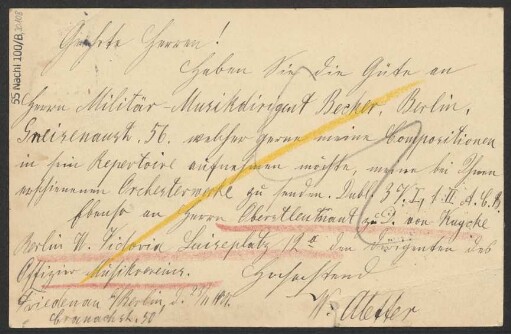 55 Nachl 100/B
Geehrte Herren!
Haben Sie die Güte an
Herrn Militär-Musikdirigent Becker, Berlin,
Gneisenaustr. 56. welcher gerne meine Compositionen
in sein Repertoire aufnehmen möchte, meine bei Ihnen
erschienenen Orchesterwerke zu senden.
Ebenso an Herrn Oberstleutnant von
Berlin W. Victoria Luiseplatz 12a den Dirigenten des
Offizier Musikvereins.
Hochachtend
Friedenau b/Berlin, d.
Cranachstr.